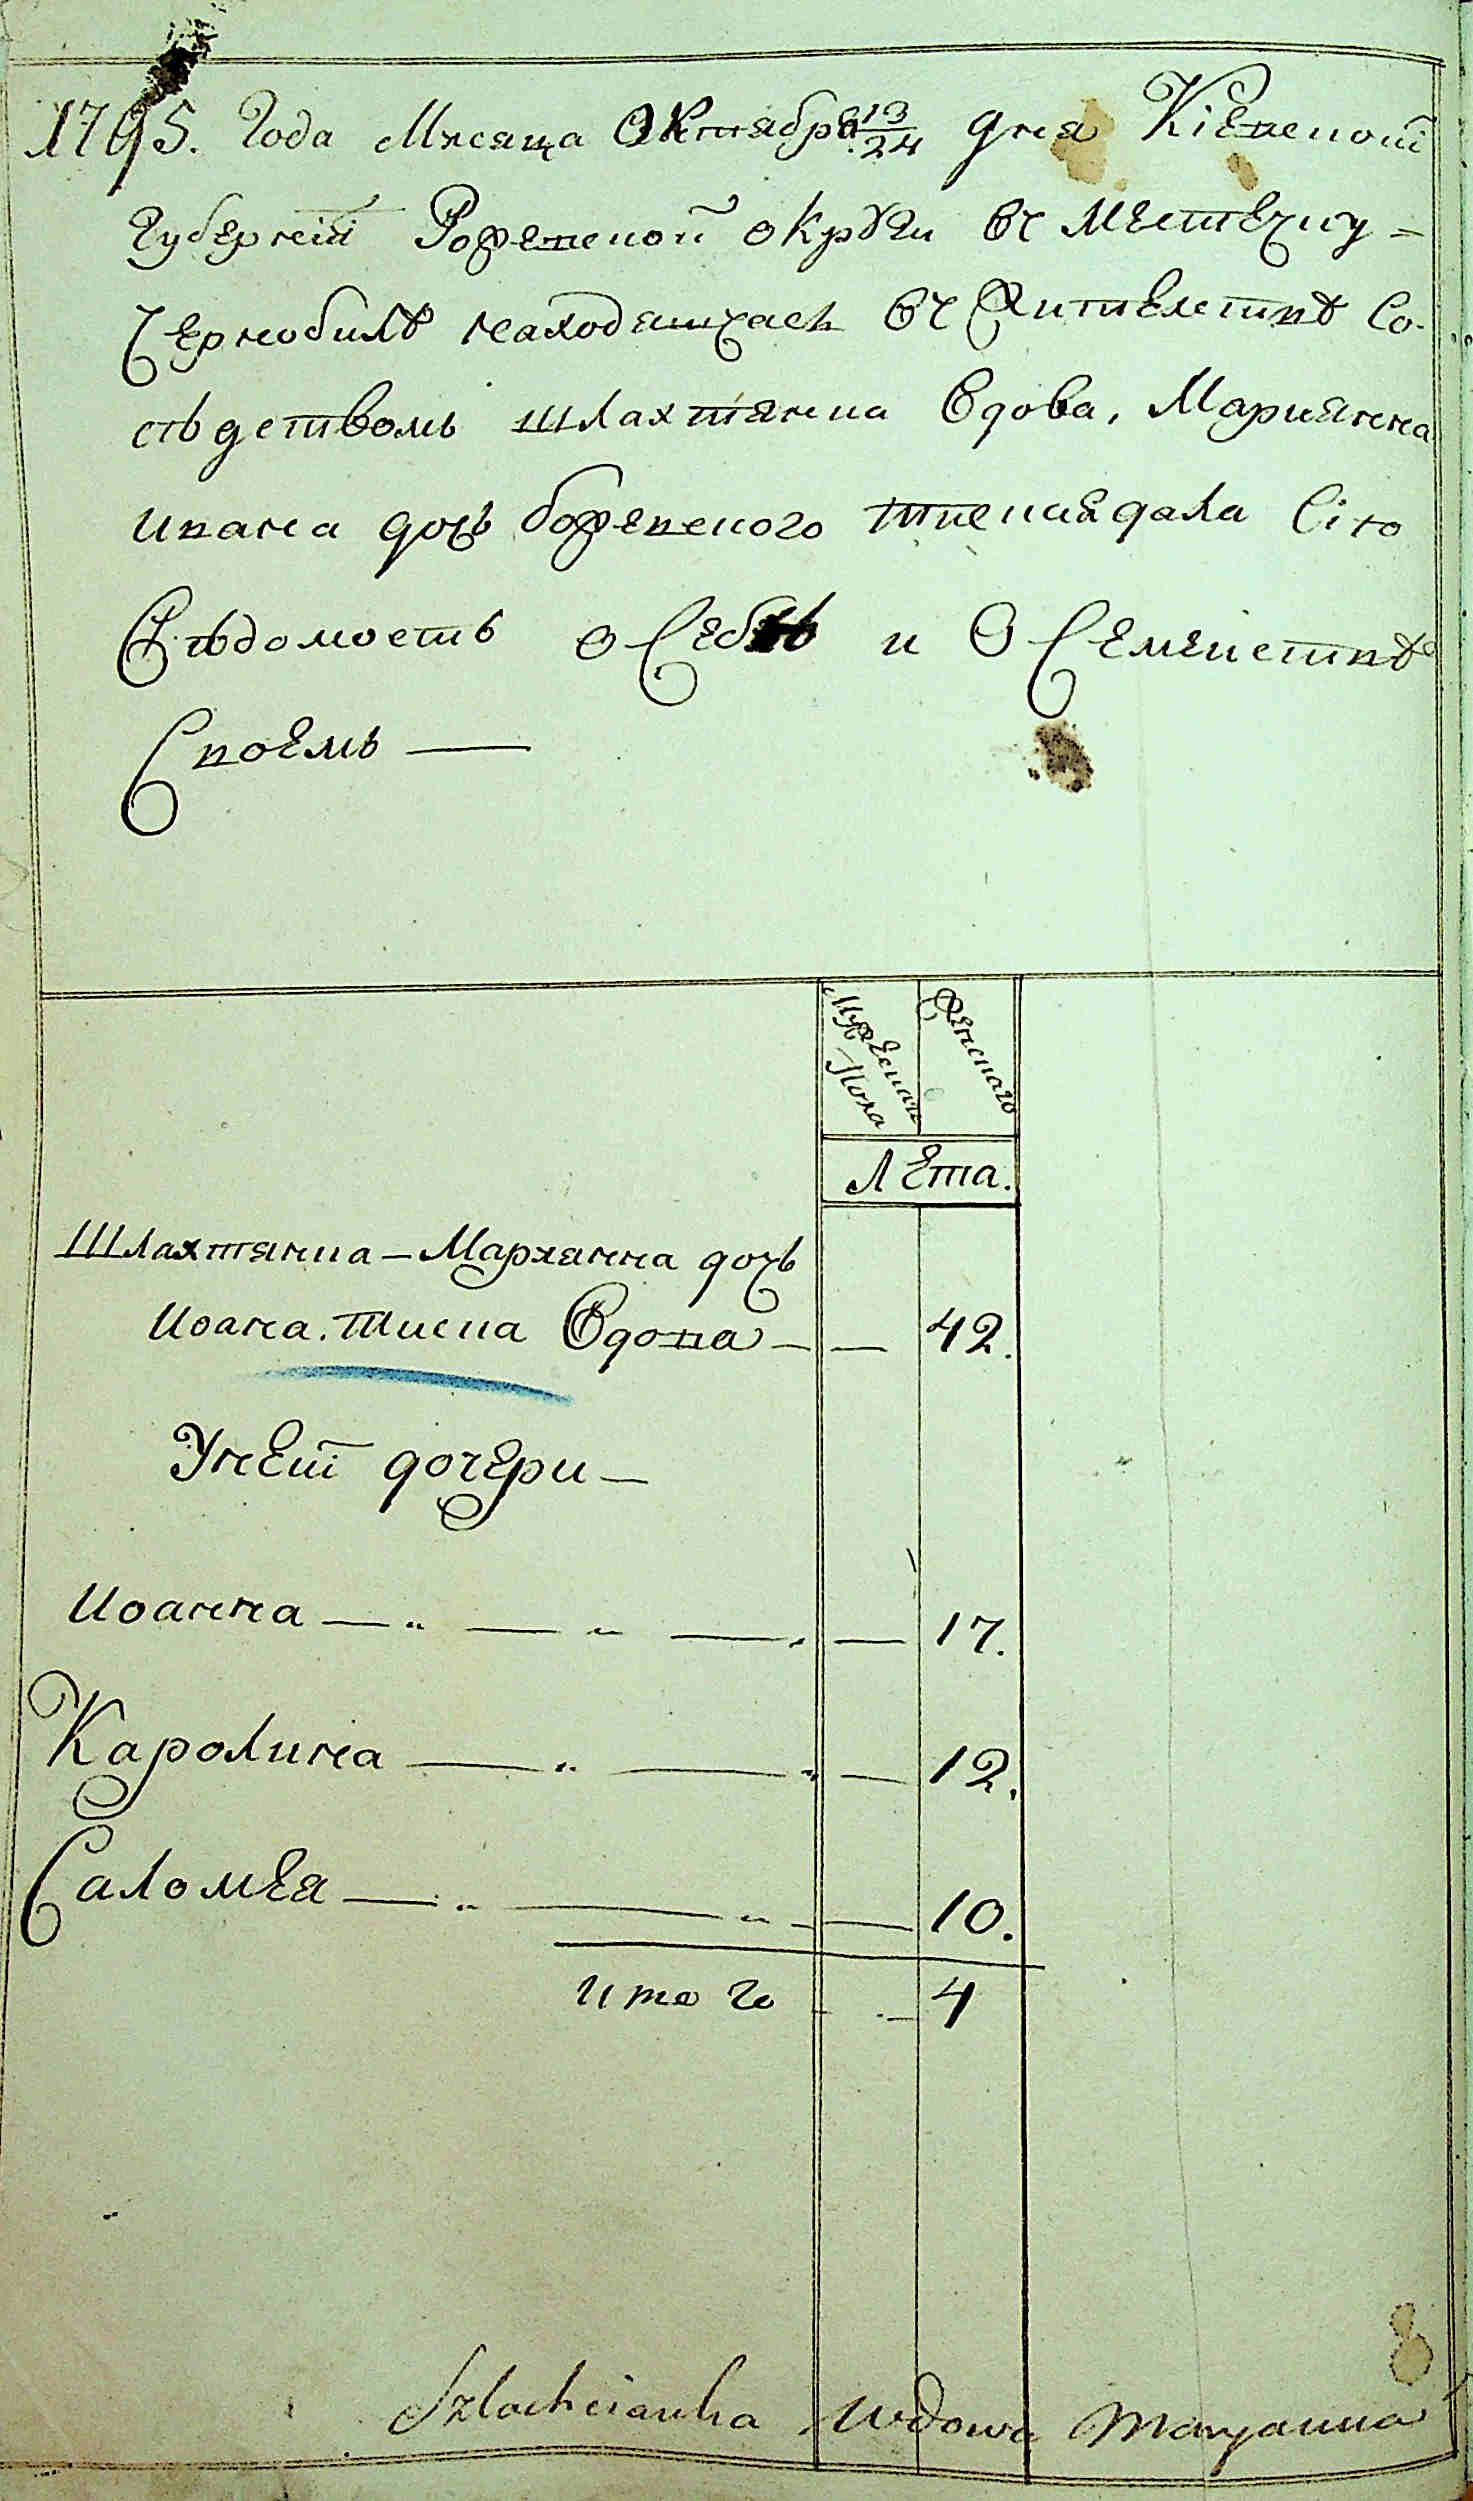 1795. Года Мѣсяца Октября 13/24 дня Кіевской
Губерніи Рофевской округи въ Местечку =
Чернобилѣ находящаея въ Жителствѣ Со-
сѣдствомъ шлахтянка Вдова, Марианна
Ивана дочь боževского тиская дала Сію
Вѣдомость о Себѣ и о Семействѣ
Своемъ —
Мужеска Пола
Женскаго
Лета.
Шлахтянка – Марианна дочь
Иоана. тиска Вдова — — 42.
Унеи дочери —
Иоанна — " — " — " — 17.
Каролина — " — " — 12.
Саломея — " — " — 10.
итого — 4
Szlachcianka Wdowa Maryanna